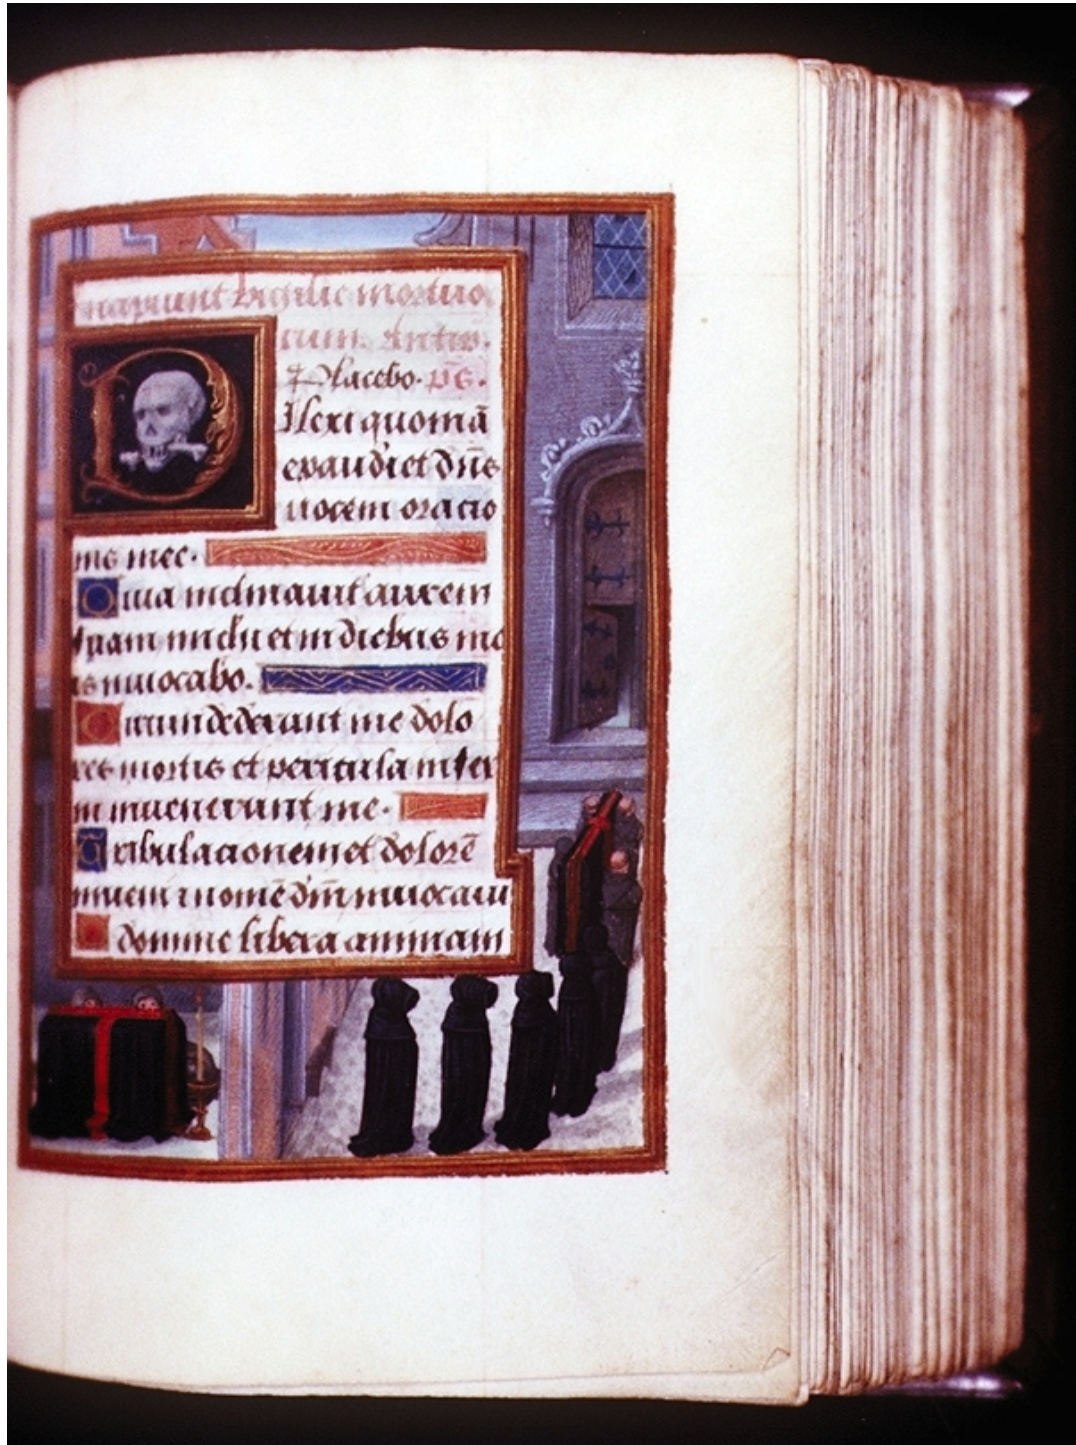 Incipiunt vigilie mortuo
rum. Antiꝰ.
Placebo. ps̄.
Dilexi quoniā
exaudiet dn̄s
vocem oratio
nis mee.
Quia inclinavit aurem
suam michi et in diebus me
is invocabo.
Circundederunt me dolo
res mortis et pericula infer
ni invenerunt me.
Tribulationem et dolorē
inveni ⁊ nomē dn̄i invocavi
O domine libera animam